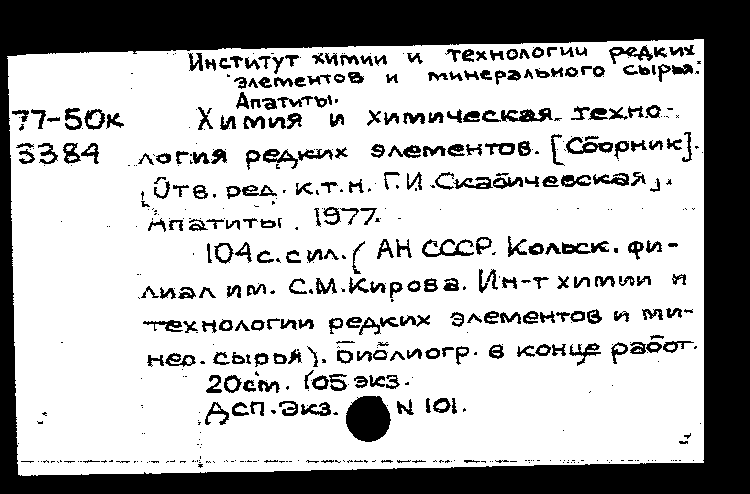 Институт химии и технологии редких
элементов и минерального сырья.
Апатиты.
77-50к Химия и химическая техно-
3384 логия редких элементов. [Сборник].
[Отв. ред. к.т.н. Г.И.Скабичевская].
Апатиты. 1977.
104с.с ил. (АН СССР. Кольск. фи-
лиал им. С.М.Кирова. Ин-т химии и
технологии редких элементов и ми-
нер. сырья). Библиогр. в конце работ.
20см. 105 экз.
ДСП.Экз. N 101.